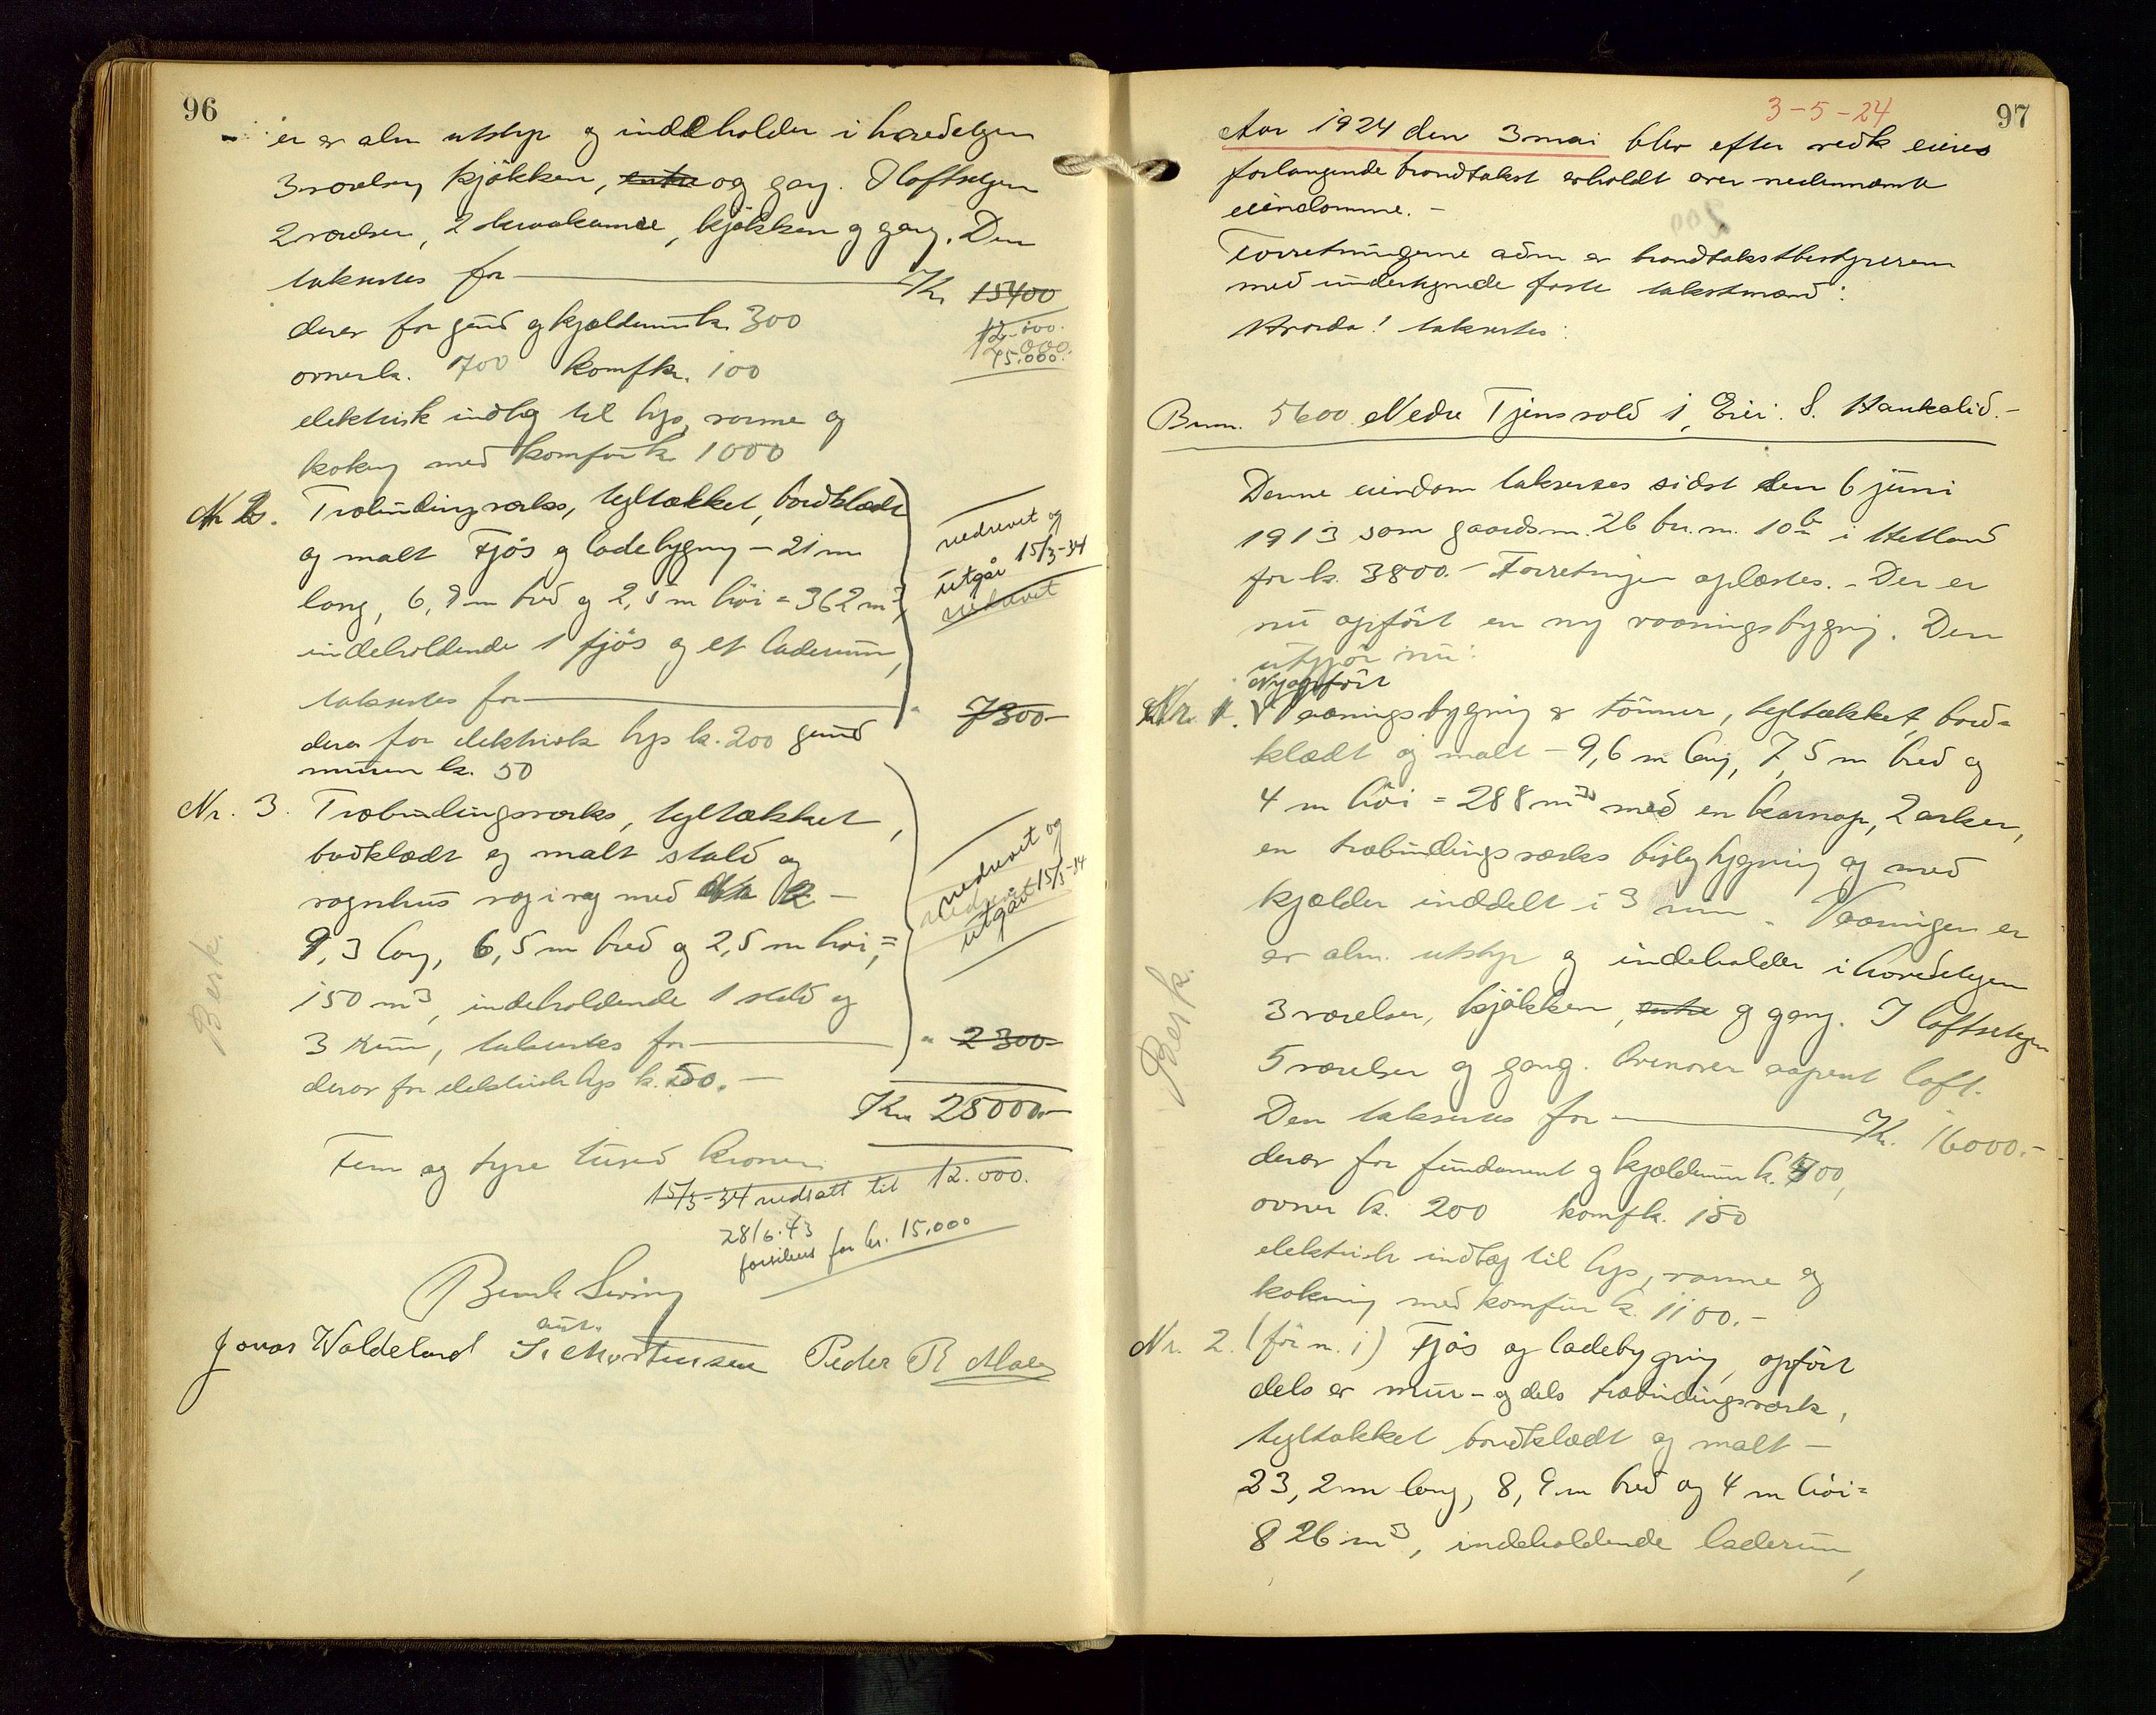 96
er av alm utstyr og indeholder i hovedetagen
3 værelser, kjøkken, entre og gang. I loftsetagen
2 værelser, 2 kvistkamre, kjøkken og gang. Den
takseres for Kr. 15400
12.000.
12.000.
15.000.
derav for grund og kjældermur kr. 300
ovner kr. 700 komfkr. 100
elektrisk indlæg til lys, varme og
kokning med komfur kr. 1000
Nr. 2. Træbindingsverks, tegltækket, bordklædt
og malt Fjös og ladebygning - 21 m
lang, 6,9 m bred og 2,5 m höi = 362 m³,
indeholdende 1 fjös og et laderum,
takseres for " 7300-
nedrevet og
utgår 15/3-34
nedrevet
derav for elektrisk lys kr. 200 grund
muren kr. 50
Nr. 3. Træbindingsverks, tegltækket,
bordklædt og malt stald og
vognhus væg i væg med Nr. 2 -
9,3 lang, 6,5 m bred og 2,5 m höi, =
150 m³, indeholdende 1 stald og
3 rum, takseres for " 2300-
nedrevet og
utgår 15/3-34
derav for elektrisk lys kr. 50. -
Kr. 25000.-
Fem og tyve tusind kroner.
15/3-34 nedsatt til 12.000.
28/6.43
forsikres for kr. 15.000
Berk.
Bernh Sviny
Jonas Waldeland Mortensen Peder R Male
97
3-5-24
Aar 1924 den 3 mai blev efter vedk eieres
forlangende brandtakst avholdt over nedennævnte
eiendomme. -
Forretningerne adm av brandtakstbestyreren
med undertegnede faste takstmænd:
Hvorda! takseres:
Brnr. 5600 Nedre Tjensvold 1, Eier: S. Haukalid. -
Denne eiendom takseres sidst den 6 juni
1913 som gaardsnr. 26 br.nr. 10 b i Hetland
for kr. 3800.- Forretningen oplæstes. - Der er
nu opfört en ny vaaningsbygning. Den
utgjör nu:
Nyopfört
Nr. 1. Vaaningsbygning av tömmer, tegltækket, bord=
klædt og malt - 9,6 m lang, 7,5 m bred og
4 m höi = 288 m³ med en karnap, 2 arker,
en træbindingsverks bislagbygning og med
kjælder inddelt i 3 rum. Vaaningen er
av alm. utstyr og indeholder i hovedetagen
3 værelser, kjøkken, entre og gang. I loftsetagen
5 værelser og gang. Ovenover aapent loft.
Den takseres for Kr. 16000.-
derav for fundament og kjældermur kr. 700,
ovner kr. 200 komfkr. 150
elektrisk indlæg til lys, varme og
kokning med komfur kr. 1100.-
Nr. 2. (för nr. 1) Fjös og ladebygning, opfört
dels av mur- og dels træbindingsverk,
tegltækket bordklædt og malt -
23,2 m lang, 8,9 m bred og 4 m höi=
826 m³, indeholdende laderum,
Berk.